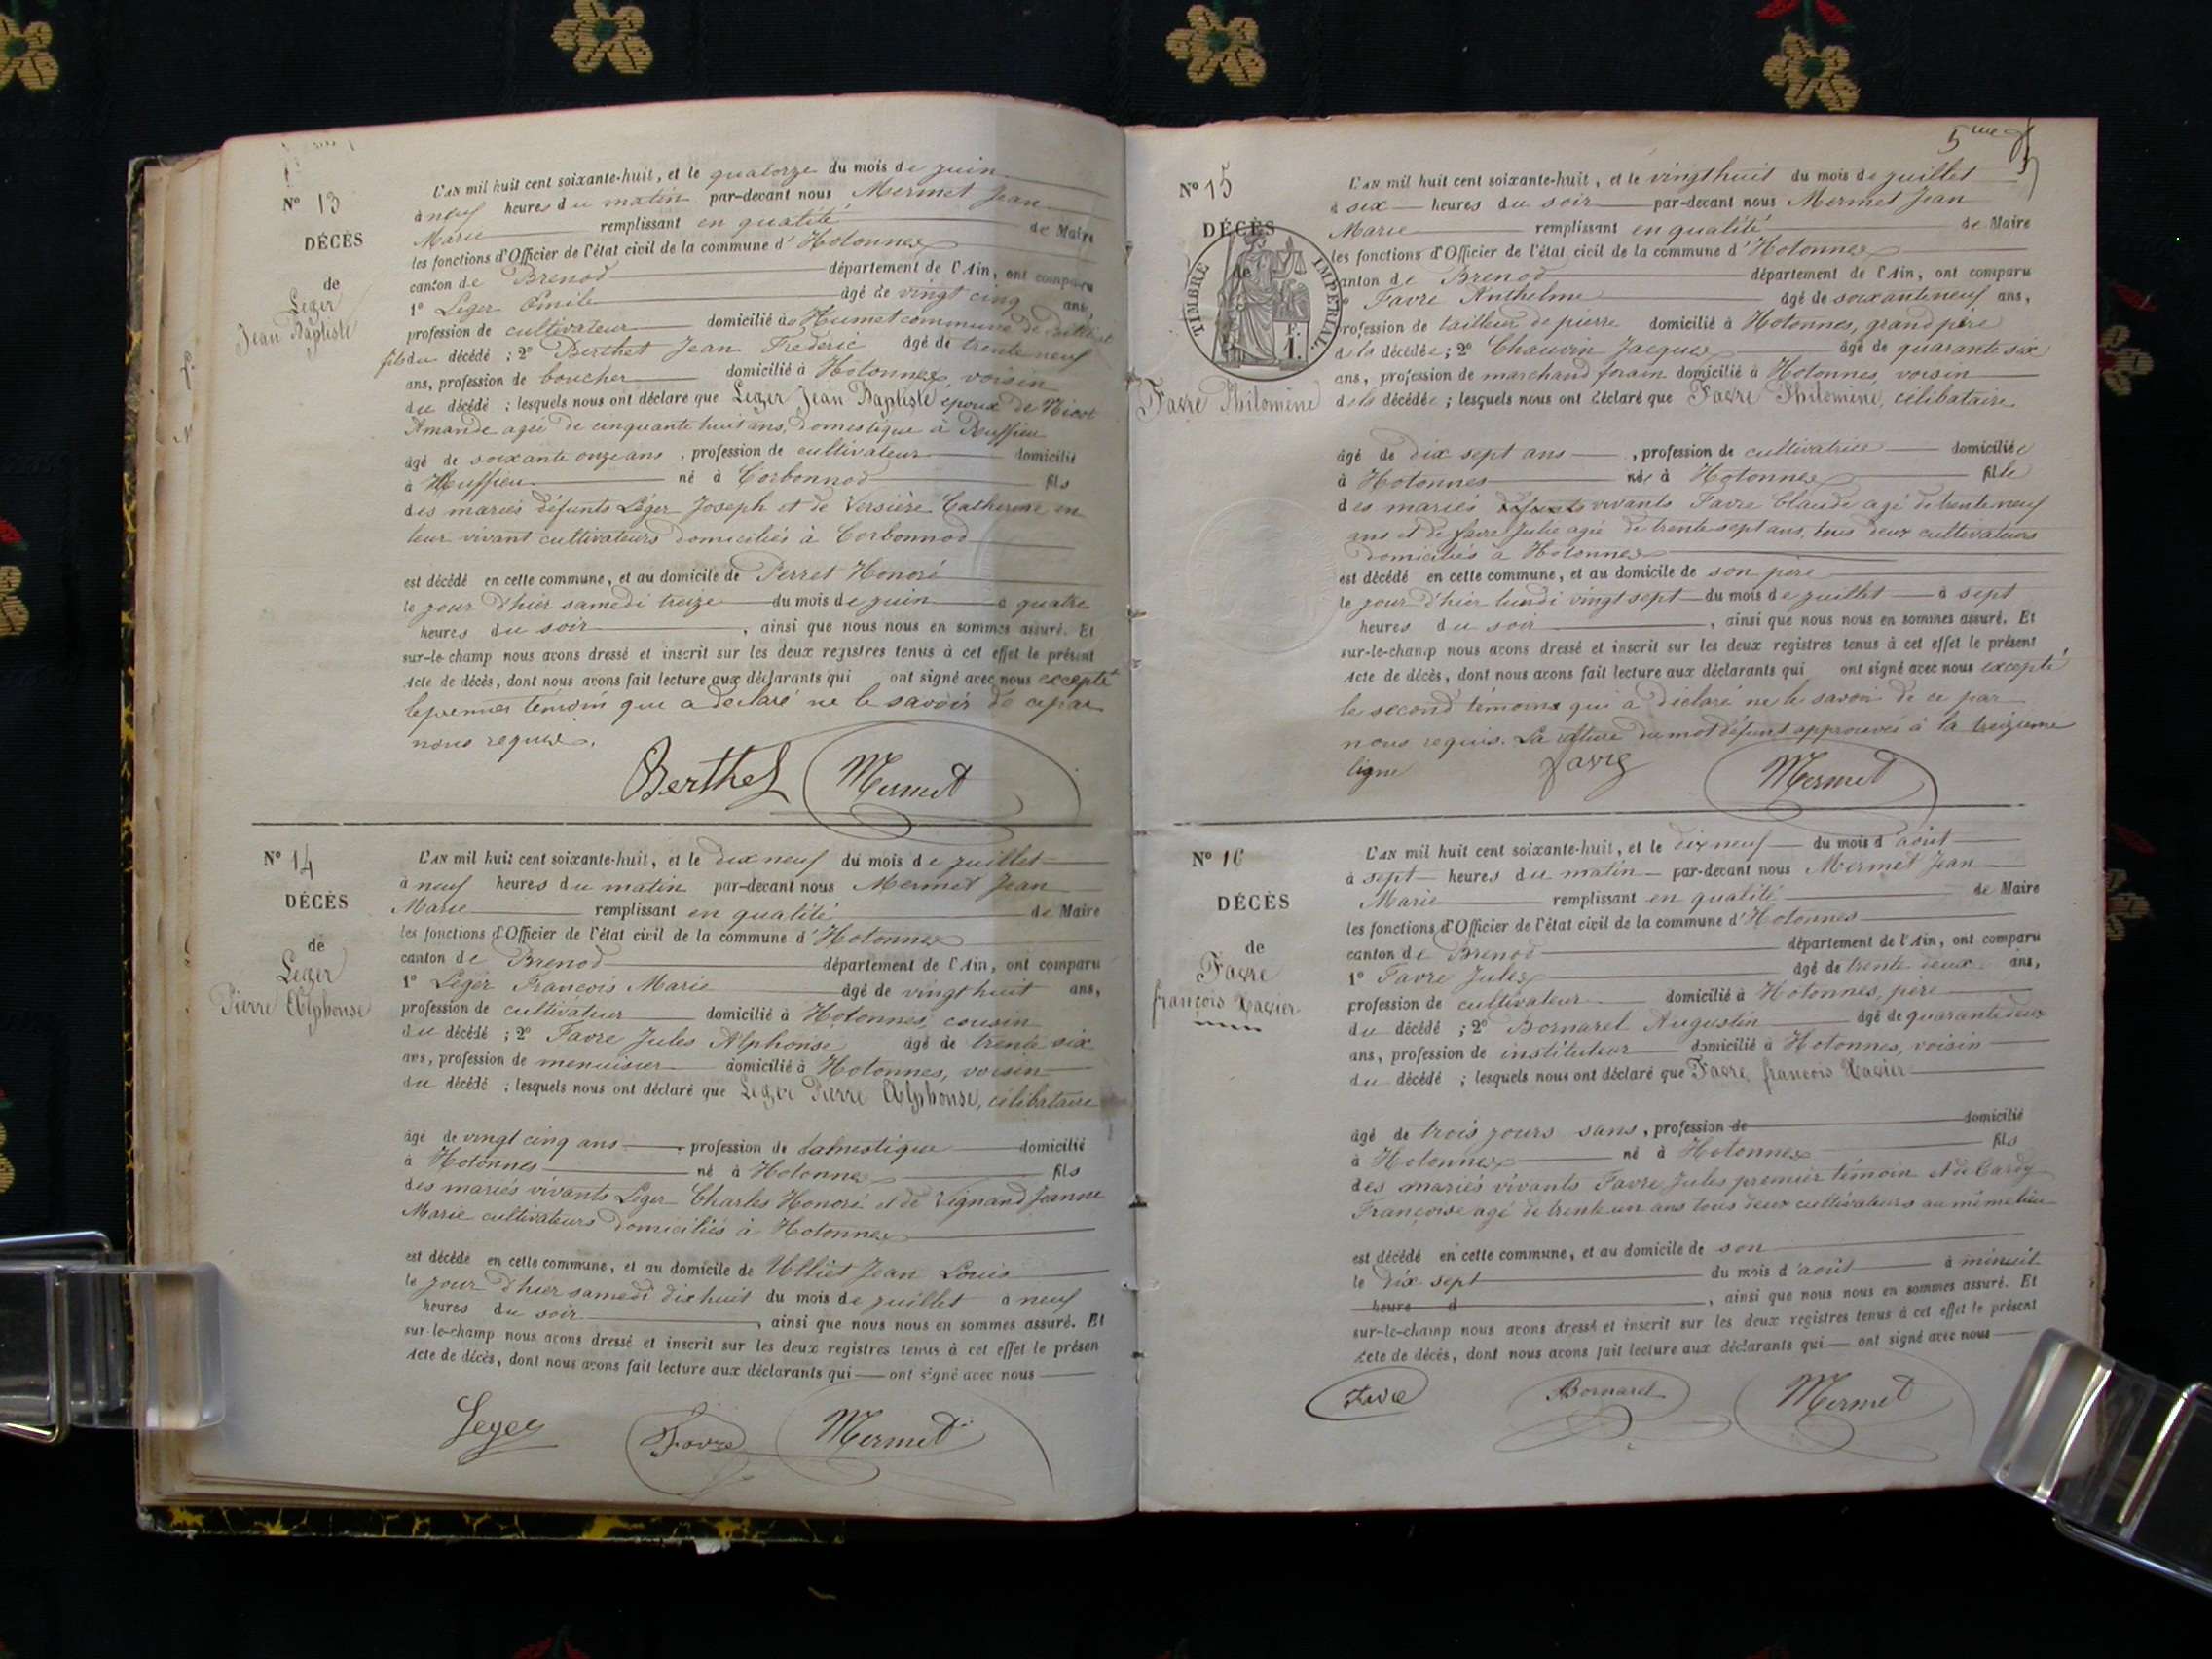 N° 13
DÉCÈS
de
Leger
Jean Baptiste
L'AN mil huit cent soixante-huit, et le quatorze du mois de juin
à neuf heures du matin par-devant nous Mermet Jean
Marie remplissant en qualité de Maire
les fonctions d'Officier de l'état civil de la commune d'Hotonnes
canton de Brenod département de l'Ain, ont comparu
1° Leger Emile âgé de vingt cinq ans,
profession de cultivateur domicilié à commune de
fils du décédé ; 2° Berthet Jean Frederic âgé de trente neuf
ans, profession de boucher domicilié à Hotonnes, voisin
du décédé ; lesquels nous ont déclaré que Leger Jean Baptiste époux de
Amande agée de cinquante huit ans, domestique à Ruffieu
âgé de soixante onze ans, profession de cultivateur domicilié
à Ruffieu né à Corbonnod fils
des mariés défunts Léger Joseph et de Versière Catherine en
leur vivant cultivateurs domiciliés à Corbonnod
est décédé en cette commune, et au domicile de Perret Honoré
le jour d'hier samedi treize du mois de juin à quatre
heures du soir, ainsi que nous nous en sommes assuré. Et
sur-le-champ nous avons dressé et inscrit sur les deux registres tenus à cet effet le présent
Acte de décès, dont nous avons fait lecture aux déclarants qui ont signé avec nous excepté
le premier témoin que a déclaré ne le savoir de ce par
nous requis.
Berthet Mermet
N° 14
DÉCÈS
de
Leger
Pierre Alphonse
L'AN mil huit cent soixante-huit, et le dix neuf du mois de juillet
à neuf heures du matin par-devant nous Mermet Jean
Marie remplissant en qualité de Maire
les fonctions d'Officier de l'état civil de la commune d'Hotonnes
canton de Brenod département de l'Ain, ont comparu
1° Léger François Marie âgé de vingt huit ans,
profession de cultivateur domicilié à Hotonnes, cousin
du décédé ; 2° Favre Jules Alphonse âgé de trente six
ans, profession de menuisier domicilié à Hotonnes, voisin
du décédé ; lesquels nous ont déclaré que Leger Pierre Alphonse, célibataire
âgé de vingt cinq ans, profession de domestique domicilié
à Hotonnes né à Hotonnes fils
des mariés vivants Léger Charles Honoré et de Vignand Jeanne
Marie cultivateurs domiciliés à Hotonnes
est décédé en cette commune, et au domicile de Ulliet Jean Louis
le jour d'hier samedi dix huit du mois de juillet à neuf
heures du soir, ainsi que nous nous en sommes assuré. Et
sur-le-champ nous avons dressé et inscrit sur les deux registres tenus à cet effet le présen
Acte de décès, dont nous avons fait lecture aux déclarants qui ont signé avec nous
Leger Favre Mermet
5me
N° 15
DÉCÈS
de
TIMBRE IMPÉRIAL.
F.
1.
Favre Philomène
L'AN mil huit cent soixante-huit, et le vingt huit du mois de juillet
à six heures du soir par-devant nous Mermet Jean
Marie remplissant en qualité de Maire
les fonctions d'Officier de l'état civil de la commune d'Hotonnes
canton de Brenod département de l'Ain, ont comparu
1° Favre Anthelme âgé de soixante neuf ans,
profession de tailleur de pierre domicilié à Hotonnes, grand père
de la décédée ; 2° Chauvin Jacques âgé de quarante six
ans, profession de marchand forain domicilié à Hotonnes, voisin
de la décédée ; lesquels nous ont déclaré que Favre Philomène, célibataire
âgé de dix sept ans, profession de cultivatrice domiciliée
à Hotonnes née à Hotonnes fille
des mariés défunts vivants Favre Claude agé de trente neuf
ans et de Favre Julie agée de trente sept ans, tous deux cultivateurs
domiciliés à Hotonnes
est décédé en cette commune, et au domicile de son père
le jour d'hier lundi vingt sept du mois de juillet à sept
heures du soir, ainsi que nous nous en sommes assuré. Et
sur-le-champ nous avons dressé et inscrit sur les deux registres tenus à cet effet le présent
Acte de décès, dont nous avons fait lecture aux déclarants qui ont signé avec nous excepté
le second témoins qui a déclaré ne le savoir de ce par
nous requis. La rature du mot défunt approuvés à la treizieme
ligne Favre Mermet
N° 16
DÉCÈS
de
Favre
françois Xavier
L'AN mil huit cent soixante-huit, et le dix neuf du mois d'août
à sept heures du matin par-devant nous Mermet Jean
Marie remplissant en qualité de Maire
les fonctions d'Officier de l'état civil de la commune d'Hotonnes
canton de Brenod département de l'Ain, ont comparu
1° Favre Jules âgé de trente deux ans,
profession de cultivateur domicilié à Hotonnes, père
du décédé ; 2° Bornarel Augustin âgé de quarante deux
ans, profession de instituteur domicilié à Hotonnes, voisin
du décédé ; lesquels nous ont déclaré que Favre françois Xavier
âgé de trois jours sans, profession de domicilié
à Hotonnes né à Hotonnes fils
des mariés vivants Favre Jules premier témoin et de Cardy
Françoise agé de trente un ans tous deux cultivateurs au même lieu
est décédé en cette commune, et au domicile de son
le dix sept du mois d'août à minuit
heure d, ainsi que nous nous en sommes assuré. Et
sur-le-champ nous avons dressé et inscrit sur les deux registres tenus à cet effet le présent
Acte de décès, dont nous avons fait lecture aux déclarants qui ont signé avec nous
Favre Bornarel Mermet